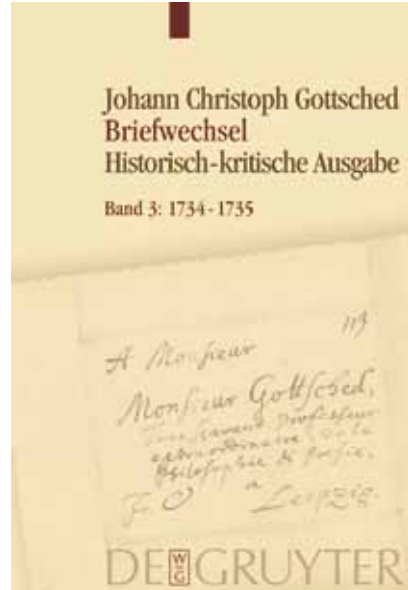 Johann Christoph Gottsched
Briefwechsel
Historisch-kritische Ausgabe
Band 3: 1734-1735
113
A Monsieur
Monsieur Gottsched,
extraordinaire de la
Philosophie & Poesie,
a
Leipzig.
DE GRUYTER